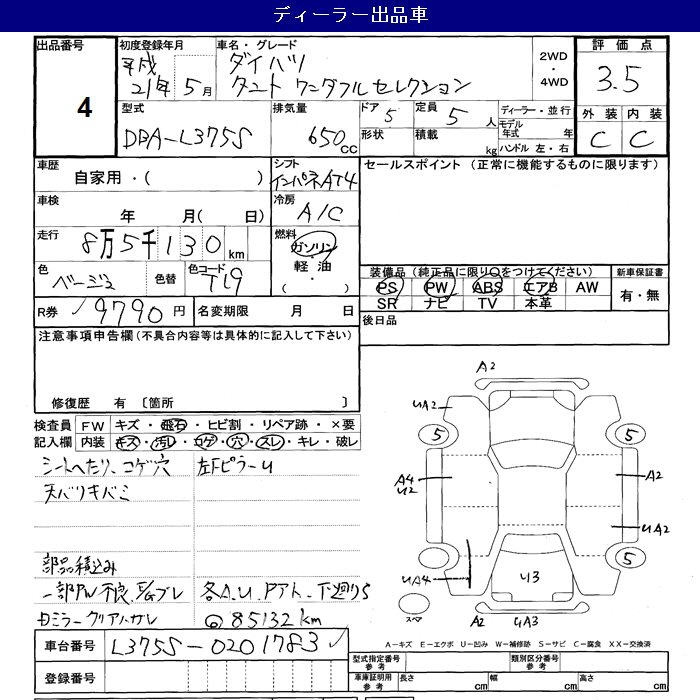 ディーラー出品車
出品番号 初度登録年月 車名・グレード 2WD・4WD 評価点
4 平成21年5月 ダイハツ タント ワンダフルセレクション 3.5
型式 排気量 ドア 5 定員 5人 ディーラー・並行 外装 内装
DBA-L375S 650cc 形状 積載 kg モデル年式 年 C C
ハンドル 左・右
車歴 シフト セールスポイント (正常に機能するものに限ります)
自家用・( ) インパネAT4
車検 冷房
年 月( 日) A/C
走行 燃料
8万5千130km ガソリン・軽油・( )
色 色替 色コード 装備品(純正品に限り○をつけてください) 新車保証書
ベージュ T19 PS PW ABS エアB AW 有・無
SR ナビ TV 本革
R券 9790円 名変期限 月 日 後日品
注意事項申告欄(不具合内容等は具体的に記入して下さい)
修復歴 有 〔箇所 〕
検査員記入欄 FW キズ・飛石・ヒビ割・リペア跡・×要
内装 キズ・汚レ・コゲ・穴・スレ・キレ・破レ
シートヘたり、コゲ穴 左Fピラーu
天バリキバミ
部品積込み
一部PW不良、E/Gブレ 各A.u.Pアト.下廻りS
ミラークリアハガレ 85132km
A2
uA2
5 5
A4 u2 A2
uA2
5
uA4 u3
スペア A2 uA3
A-キズ E-エクボ U-凹み W-補修跡 S-サビ C-腐食 XX-交換済
車台番号 L375S-0201783
登録番号
型式指定番号 参考 類別区分番号 参考
車庫証明用 参考 長さ cm 幅 cm 高さ cm